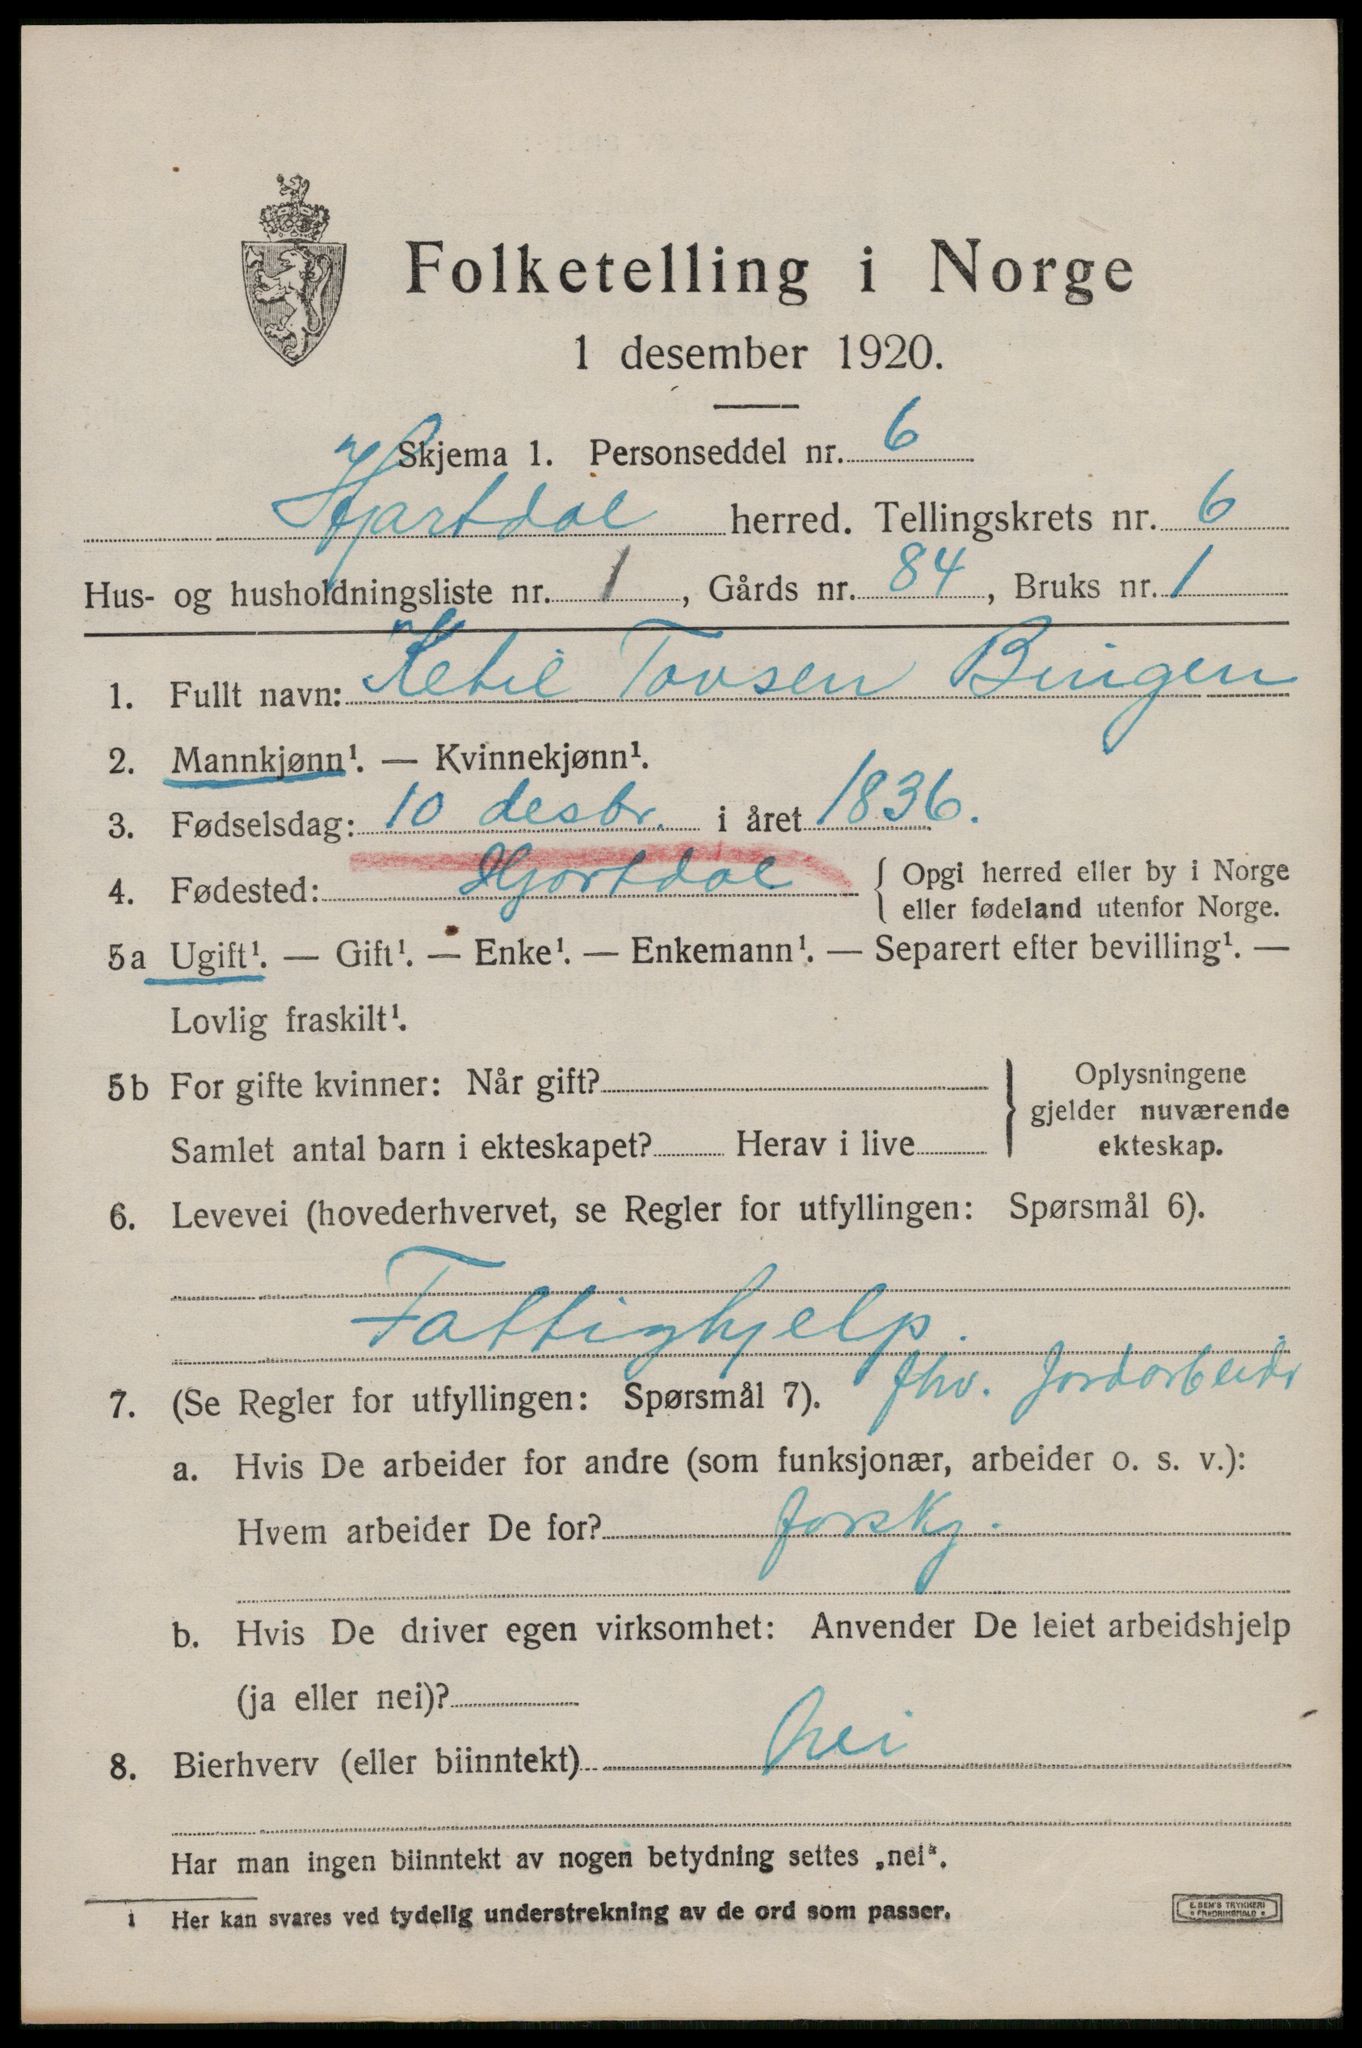 Folketelling i Norge
1 desember 1920.
Skjema 1. Personseddel nr. 6
Hjartdal herred. Tellingskrets nr. 6
Hus- og husholdningsliste nr. 1, Gårds nr. 84, Bruks nr. 1
1. Fullt navn: Ketil Tovsen Bingen
2. Mannkjønn¹. — Kvinnekjønn¹.
3. Fødselsdag: 10 desbr. i året 1836.
4. Fødested: Hjartdal { Opgi herred eller by i Norge
eller fødeland utenfor Norge.
5a Ugift¹. — Gift¹. — Enke¹. — Enkemann¹. — Separert efter bevilling¹. —
Lovlig fraskilt¹.
5b For gifte kvinner: Når gift? } Oplysningene
gjelder nuværende
Samlet antal barn i ekteskapet? Herav i live ekteskap.
6. Levevei (hovederhvervet, se Regler for utfyllingen: Spørsmål 6).
Fattighjelp.
fhv. Jordarbeidr
7. (Se Regler for utfyllingen: Spørsmål 7).
a. Hvis De arbeider for andre (som funksjonær, arbeider o. s. v.):
Hvem arbeider De for? forskj.
b. Hvis De driver egen virksomhet: Anvender De leiet arbeidshjelp
(ja eller nei)?
8. Bierhverv (eller biinntekt) nei
Har man ingen biinntekt av nogen betydning settes „nei".
1 Her kan svares ved tydelig understrekning av de ord som passer.
E. SEM'S TRYKKERI
FREDRIKSHALD